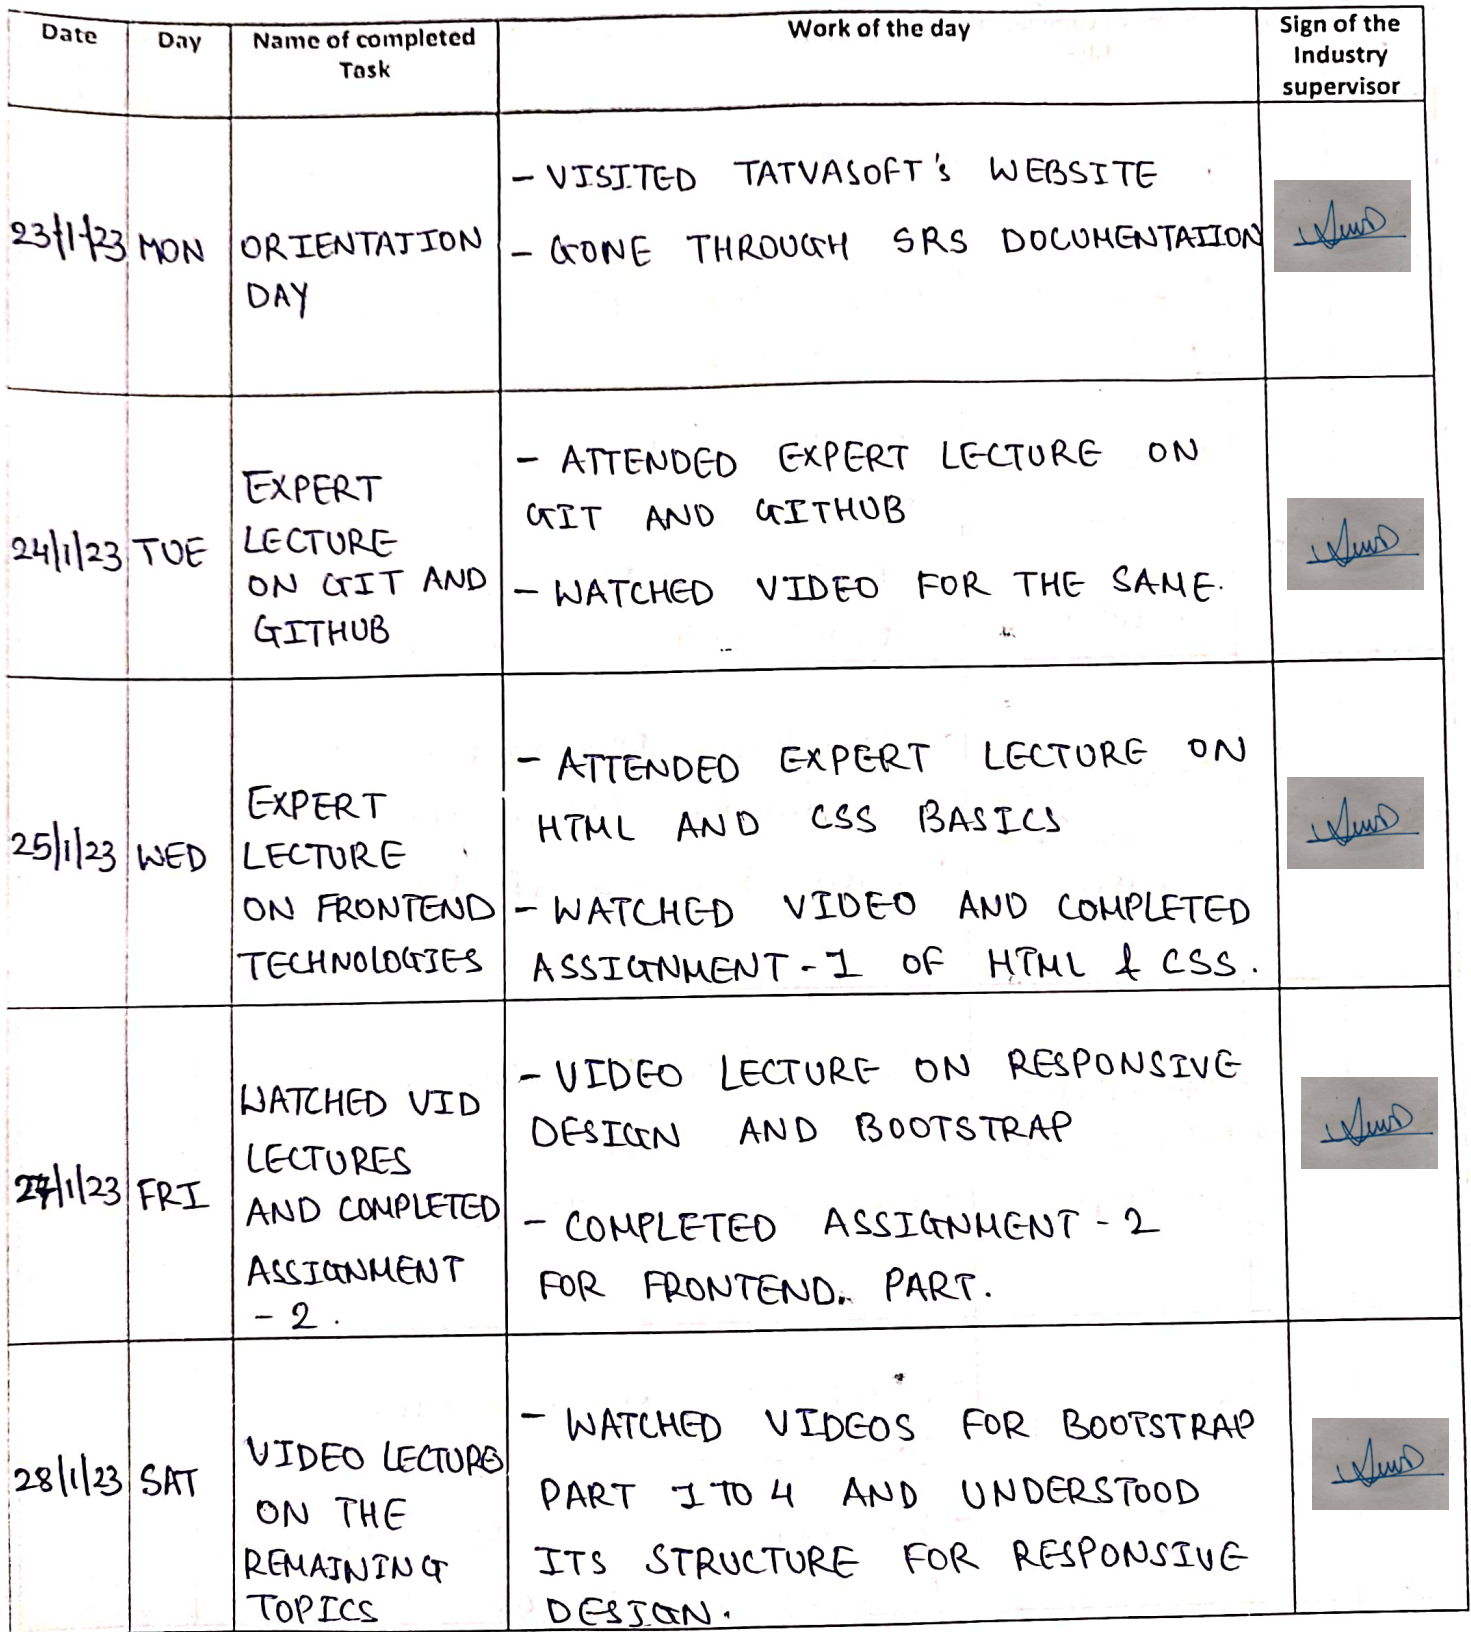 Date Day Name of completed Work of the day Sign of the
Task Industry
supervisor
23/1/23 MON ORIENTATION
DAY
- VISITED TATVASOFT's WEBSITE
- GONE THROUGH SRS DOCUMENTATION
24/1/23 TUE EXPERT
LECTURE
ON GIT AND
GITHUB
- ATTENDED EXPERT LECTURE ON
GIT AND GITHUB
- WATCHED VIDEO FOR THE SAME.
25/1/23 WED EXPERT
LECTURE
ON FRONTEND
TECHNOLOGIES
- ATTENDED EXPERT LECTURE ON
HTML AND CSS BASICS
- WATCHED VIDEO AND COMPLETED
ASSIGNMENT-1 OF HTML & CSS.
27/1/23 FRI WATCHED VID
LECTURES
AND COMPLETED
ASSIGNMENT
- 2.
- VIDEO LECTURE ON RESPONSIVE
DESIGN AND BOOTSTRAP
- COMPLETED ASSIGNMENT - 2
FOR FRONTEND. PART.
28/1/23 SAT VIDEO LECTURES
ON THE
REMAINING
TOPICS
- WATCHED VIDEOS FOR BOOTSTRAP
PART 1 TO 4 AND UNDERSTOOD
ITS STRUCTURE FOR RESPONSIVE
DESIGN.